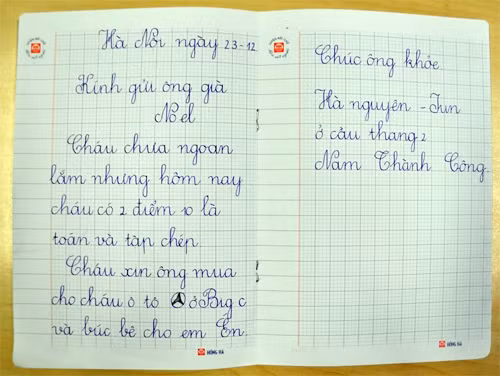 Hà Nội ngày 23-12
Kính gửi ông già
Nô el
Cháu chưa ngoan
lắm nhưng hôm nay
cháu có 2 điểm 10 là
toán và tập chép.
Cháu xin ông mua
cho cháu ô tô ở Big C
và búc bê cho em Én.
HỒNG HÀ
Chúc ông khỏe
Hà nguyên - Jun
ở câu thang 2
Nam Thành Công.
HỒNG HÀ